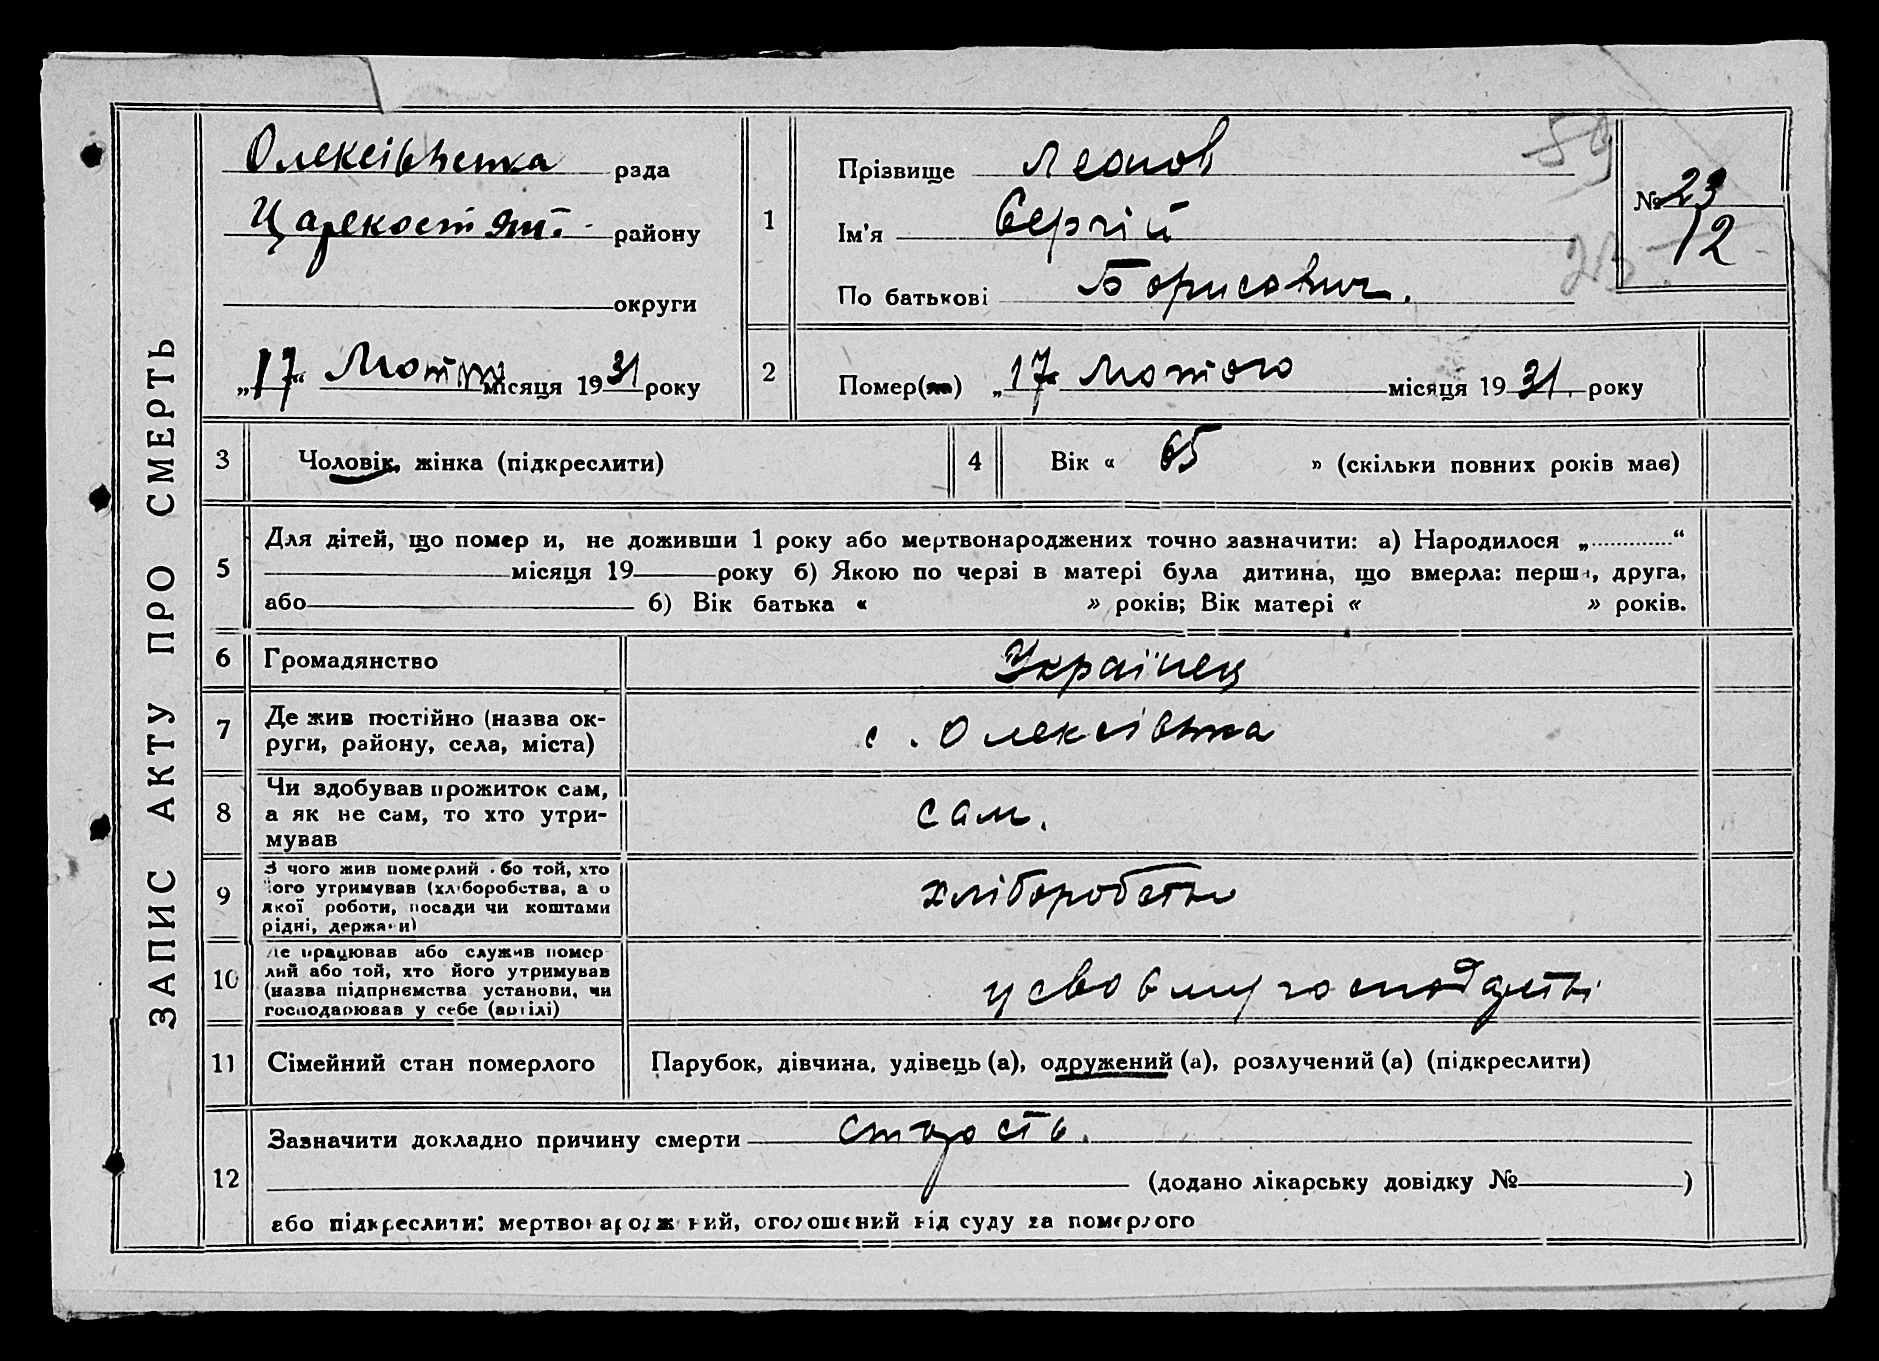 ЗАПИС АКТУ ПРО СМЕРТЬ
Олексіївська рада
району
округи
„17“ Лютого місяця 1931 року
1
Прізвище Леонов
Ім'я Сергій
По батькові Борисович.
№ 23
12
59
2
Помер(ла) „17“ Лютого місяця 1931. року
3 Чоловік, жінка (підкреслити)
4 Вік « 65 » (скільки повних років має)
5
Для дітей, що помер и, не доживши 1 року або мертвонароджених точно зазначити: а) Народилося „ “
місяця 19 року б) Якою по черзі в матері була дитина, що вмерла: перша, друга,
або б) Вік батька « » років; Вік матері « » років.
6 Громадянство Українец
7 Де жив постійно (назва ок-
руги, району, села, міста)
с. Олексіївка
8 Чи здобував прожиток сам,
а як не сам, то хто утри-
мував
сам.
9 З чого жив померлий або той, хто
його утримував (хліборобства, а о
якої роботи, посади чи коштами
рідні, держави)
хліборобство
10 Де працював або служив помер
лий або той, хто його утримував
(назва підприємства установи, чи
господарював у себе (артілі)
у своему господарстві
11 Сімейний стан померлого
Парубок, дівчина, удівець (а), одружений (а), розлучений (а) (підкреслити)
12
Зазначити докладно причину смерти старость.
(додано лікарську довідку № )
або підкреслити: мертвонароджений, оголошений від суду за померлого